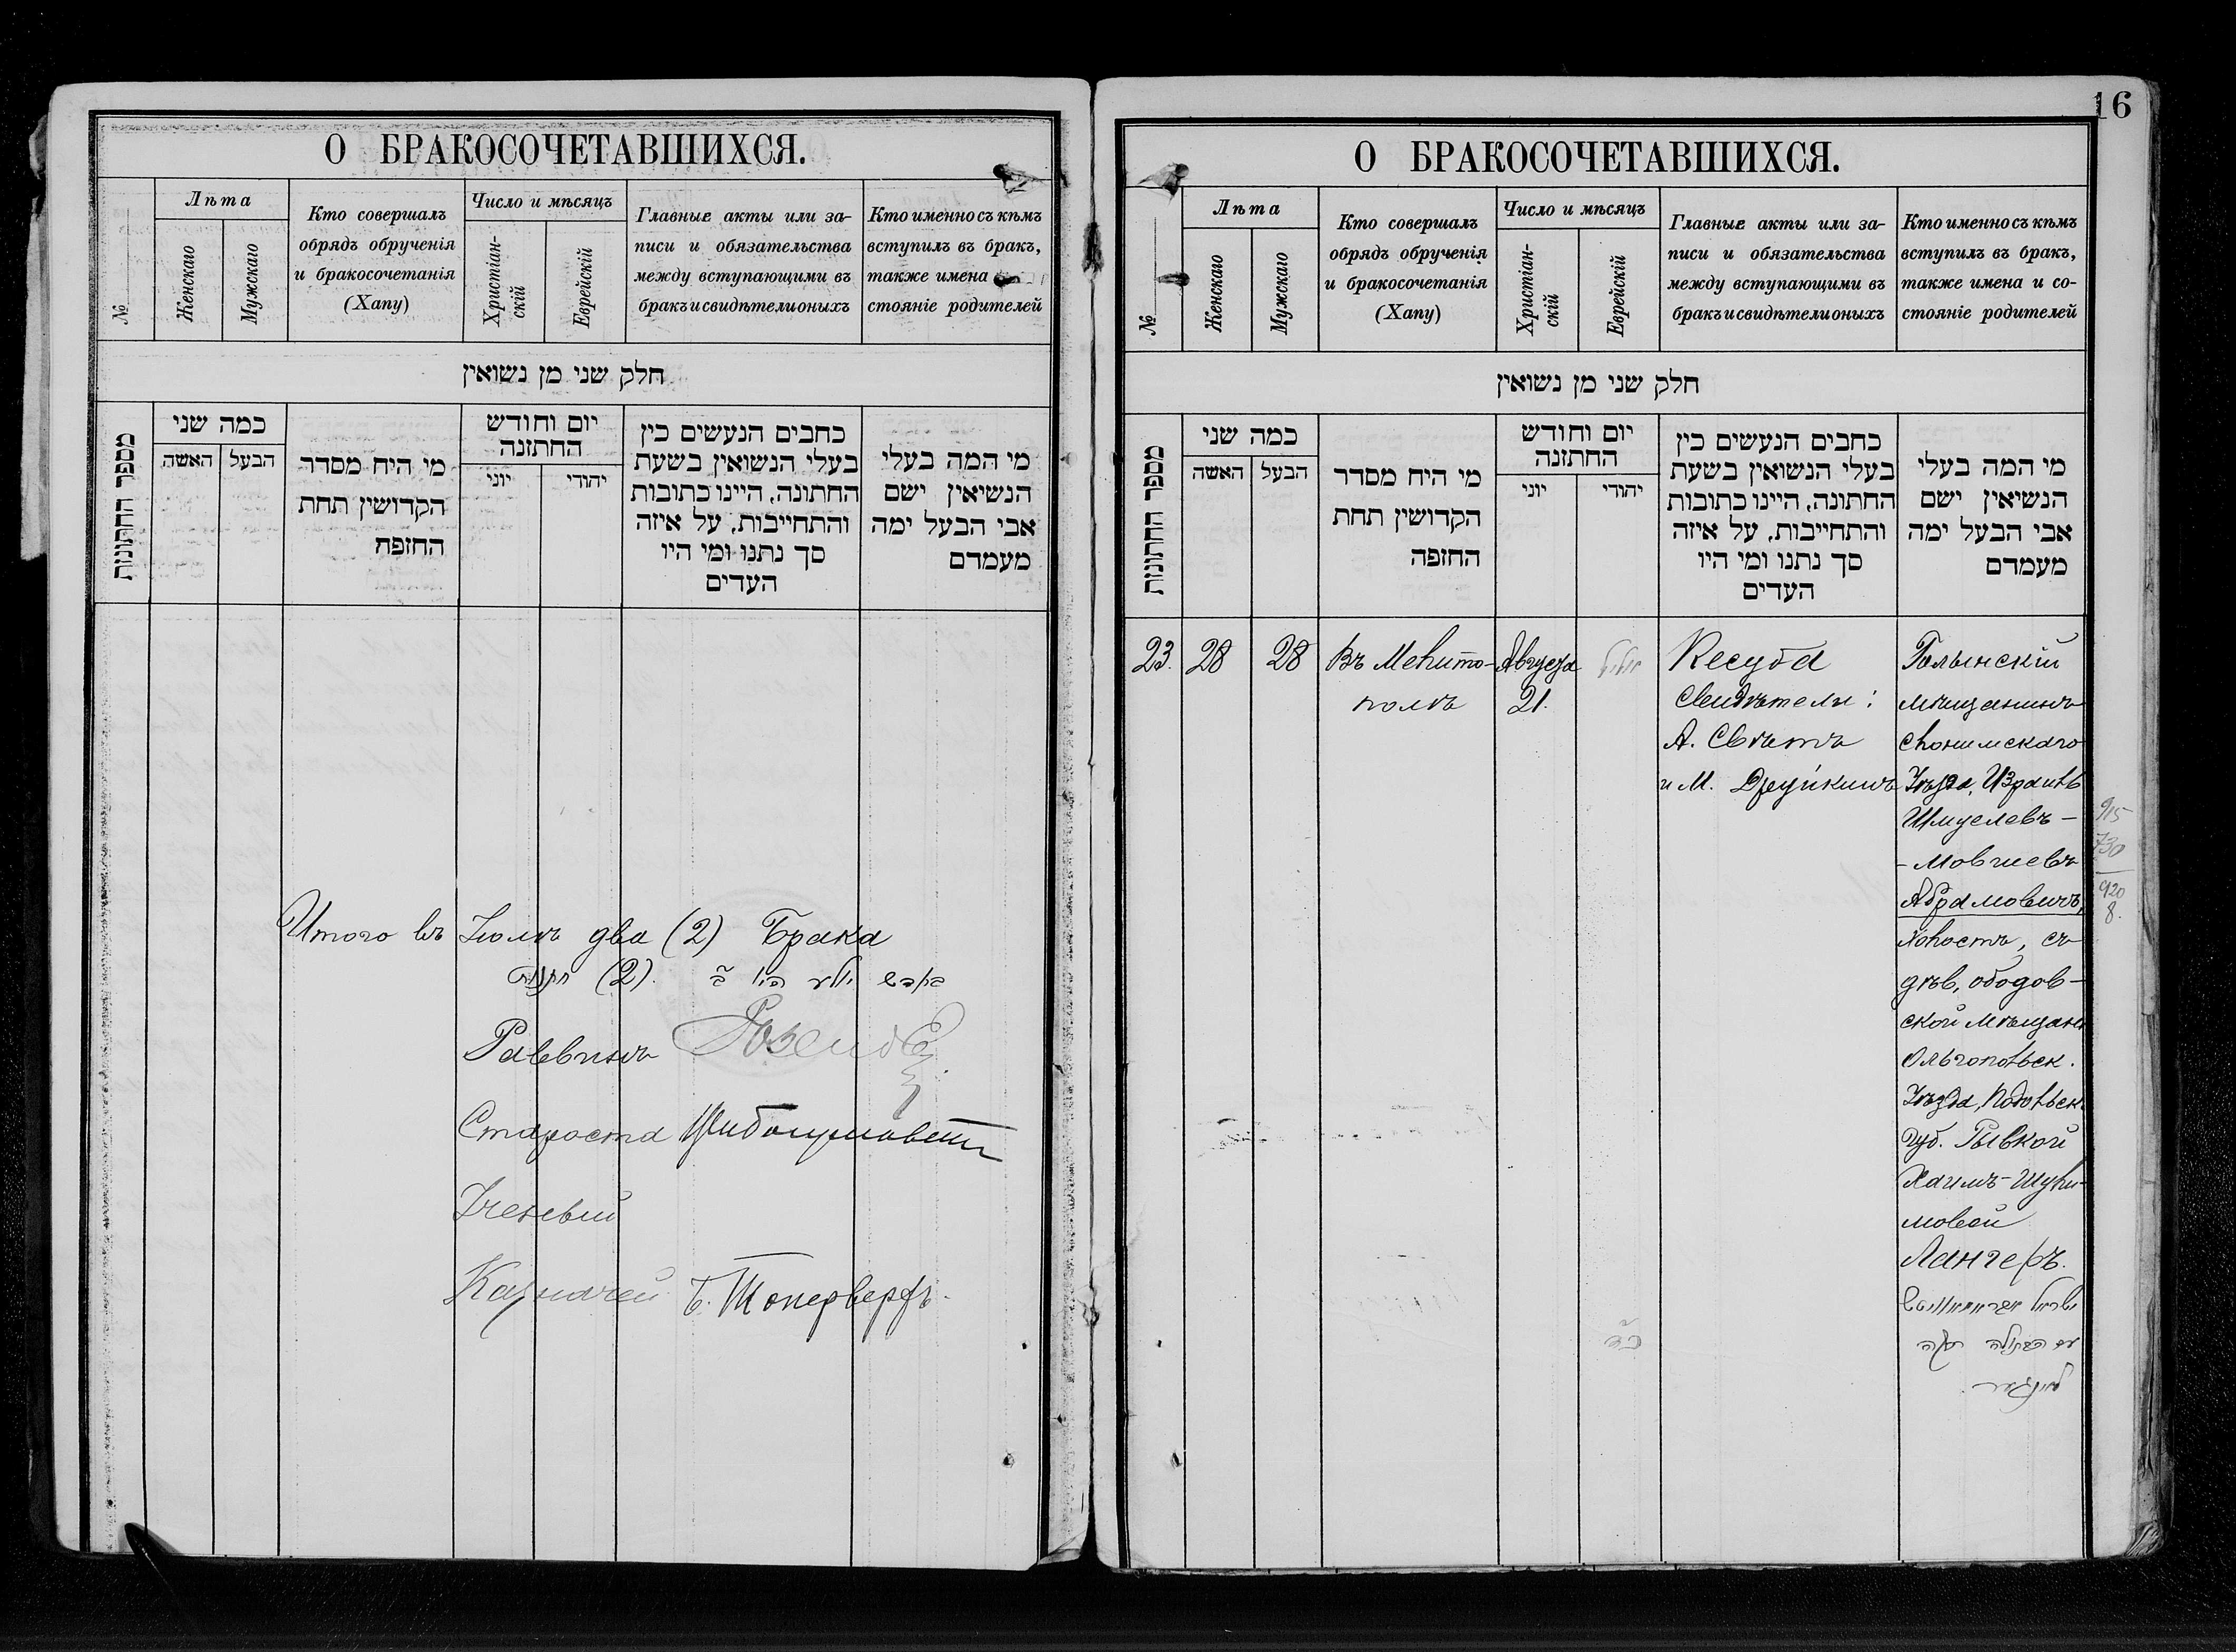 О БРАКОСОЧЕТАВШИХСЯ.
№
Лѣта
Женскаго
Мужскаго
Кто совершалъ
обрядъ обрученія
и бракосочетанія
(Хапу)
Число и мѣсяцъ
Христіан-
скій
Еврейскій
Главные акты или за-
писи и обязательства
между вступающими въ
бракъ и свидѣтели оныхъ
Кто именно съ кѣмъ
вступилъ въ бракъ,
также имена
стояніе родителей
חלק שני מן נשואין
מספר החתונות
כמה שני
האשה
הבעל
מי היח מסדר
הקדושין תחת
החופח
יום וחודש
החתזנה
יוני
יהודי
כחבים הנעשים כין
בעלי הנשואין בשעת
החתונה, היינו כתובות
והתחייבות, על איזה
סך נתנו ומי היו
העדים
מי המה בעלי
הנשיאין ישם
אבי הבעל ימה
מעמדם
Итого въ Іюлѣ два (2) Брака
(2).
Раввинъ
Староста
Ученый
Казначей Б. Топерверфъ
16
О БРАКОСОЧЕТАВШИХСЯ.
№
Лѣта
Женскаго
Мужскаго
Кто совершалъ
обрядъ обрученія
и бракосочетанія
(Хапу)
Число и мѣсяцъ
Христіан-
скій
Еврейскій
Главные акты или за-
писи и обязательства
между вступающими въ
бракъ и свидѣтели оныхъ
Кто именно съ кѣмъ
вступилъ въ бракъ,
также имена и со-
стояніе родителей
חלק שני מן נשואין
מספר החתונות
כמה שני
האשה
הבעל
מי היח מסדר
הקדושין תחת
החזפה
יום וחודש
החתזנה
יוני
יהודי
כחבים הנעשים כין
בעלי הנשואין בשעת
החתונה, היינו כתובות
והתחייבות, על איזה
סך נתנו ומי היו
העדים
מי המה בעלי
הנשיאין ישם
אבי הבעל ימה
מעמדם
23.
28
28
Въ Мелито-
полѣ
Августа
21.
Кесуба
Свидѣтели:
А. Свѣтъ
и М. Дрейкинъ
Голынскій
мѣщанинъ
Слонимскаго
Уѣзда, Израиль
Шмулевъ-
-Мовшевъ
Абрамовичъ,
холостъ, съ
дѣв, ободов-
ской мѣщан.
Ольгопольск.
Уѣзда, Подольск.
губ. Рывкой
Хаимъ-Шули-
мовой
Лангеръ.
כ"ד
ישראל אבראמאוויטש
עם הבתולה רבקה
לאנגער
915
730
920
8.